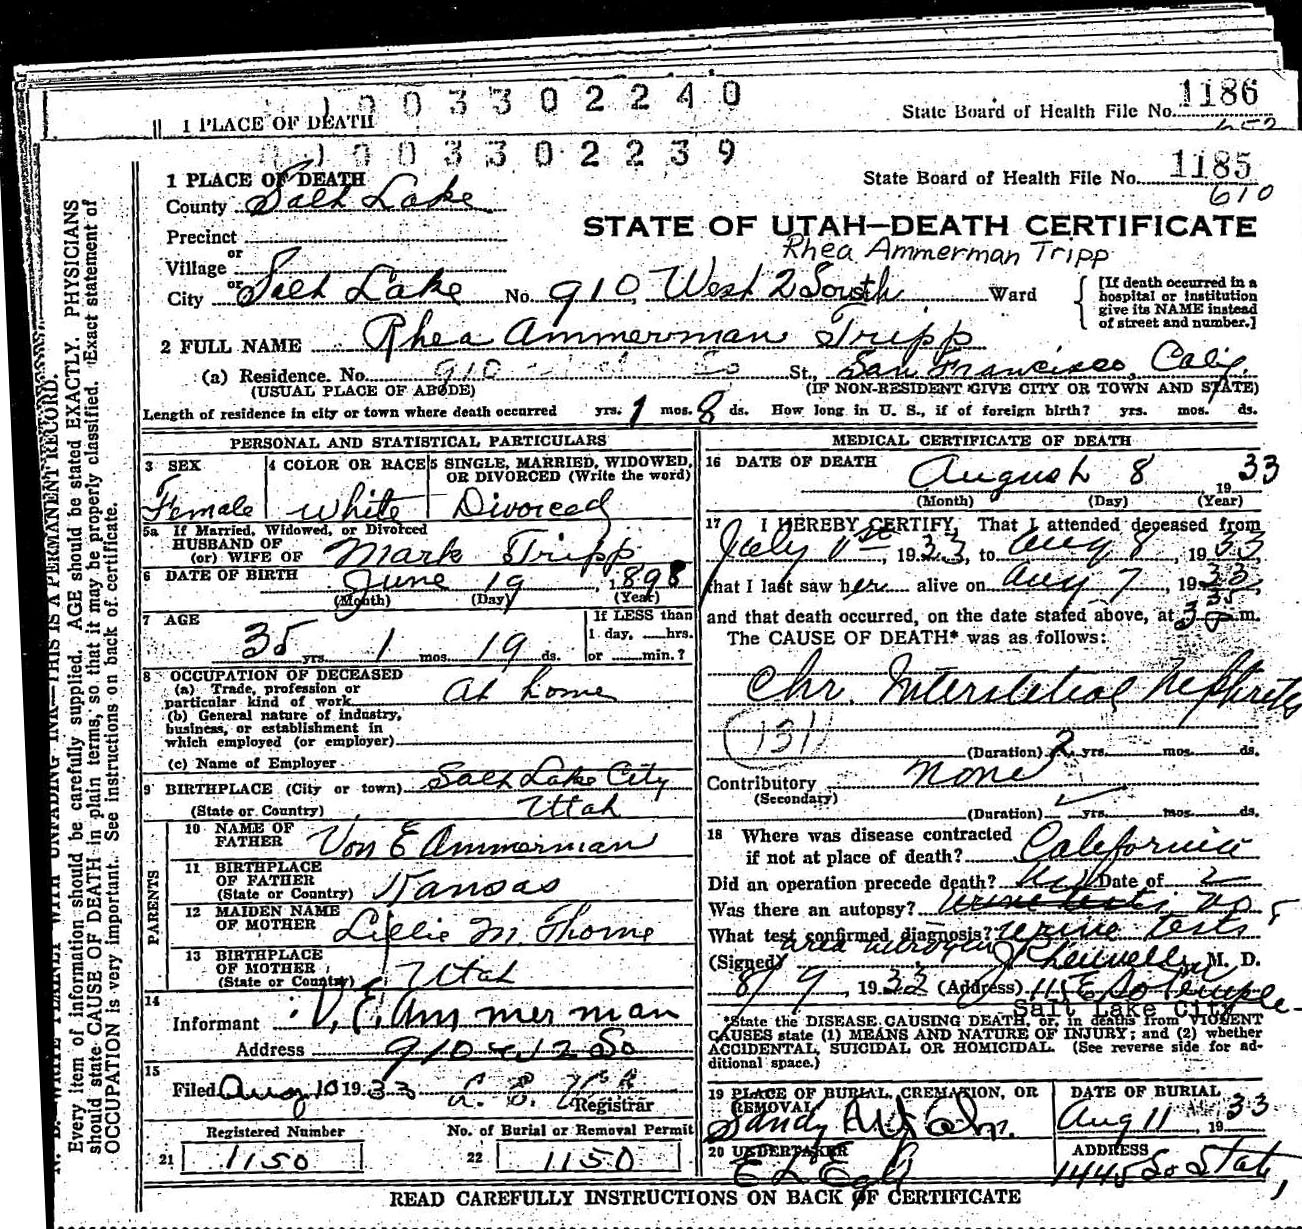 1003302240
1 PLACE OF DEATH State Board of Health File No. 1186
1003302239
1 PLACE OF DEATH State Board of Health File No. 1185
610
County Salt Lake
STATE OF UTAH—DEATH CERTIFICATE
Precinct
Rhea Ammerman Tripp
or
Village
or
City Salt Lake No. 910 West 2 South Ward
[If death occurred in a hospital or institution give its NAME instead of street and number.]
2 FULL NAME Rhea Ammerman Tripp
(a) Residence. No. 910 St., San Francisco, Calif
(USUAL PLACE OF ABODE) (IF NON-RESIDENT GIVE CITY OR TOWN AND STATE)
Length of residence in city or town where death occurred yrs. 1 mos. 8 ds. How long in U. S., if of foreign birth? yrs. mos. ds.
PERSONAL AND STATISTICAL PARTICULARS
3 SEX 4 COLOR OR RACE 5 SINGLE, MARRIED, WIDOWED, OR DIVORCED (Write the word)
Female White Divorced
5a If Married, Widowed, or Divorced
HUSBAND OF
(or) WIFE OF Mark Tripp
6 DATE OF BIRTH June 19, 1898
(Month) (Day) (Year)
7 AGE If LESS than
1 day, hrs.
35 yrs. 1 mos. 19 ds. or min.?
8 OCCUPATION OF DECEASED
(a) Trade, profession or
particular kind of work At home
(b) General nature of industry,
business, or establishment in
which employed (or employer)
(c) Name of Employer
9 BIRTHPLACE (City or town) Salt Lake City
(State or Country) Utah
PARENTS
10 NAME OF
FATHER Von E Ammerman
11 BIRTHPLACE
OF FATHER
(State or Country) Kansas
12 MAIDEN NAME
OF MOTHER Lillie M. Thorne
13 BIRTHPLACE
OF MOTHER
(State or Country) Utah
14
Informant V. E. Ammerman
Address 910 W 2 So
15
Filed Aug 10 1933
Registrar
Registered Number No. of Burial or Removal Permit
21 1150 22 1150
MEDICAL CERTIFICATE OF DEATH
16 DATE OF DEATH August 8 1933
(Month) (Day) (Year)
17 I HEREBY CERTIFY, That I attended deceased from
July 1st, 1933, to Aug 8, 1933
that I last saw her alive on Aug 7, 1933,
and that death occurred, on the date stated above, at m.
The CAUSE OF DEATH* was as follows:
Chr. Interstitial Nephritis
(131)
(Duration) 2 yrs. mos. ds.
Contributory None
(Secondary)
(Duration) yrs. mos. ds.
18 Where was disease contracted
if not at place of death? California
Did an operation precede death? No Date of
Was there an autopsy? no
What test confirmed diagnosis? urine tests
(Signed) M. D.
8/9, 1933 (Address) 115 E So Temple
Salt Lake City
*State the DISEASE CAUSING DEATH, or, in deaths from VIOLENT
CAUSES state (1) MEANS AND NATURE OF INJURY; and (2) whether
ACCIDENTAL, SUICIDAL OR HOMICIDAL. (See reverse side for additional space.)
19 PLACE OF BURIAL, CREMATION, OR
REMOVAL
DATE OF BURIAL
Sandy Aug 11, 1933
20 UNDERTAKER ADDRESS
1445 So State
READ CAREFULLY INSTRUCTIONS ON BACK OF CERTIFICATE
N. B. WRITE PLAINLY WITH UNFADING INK—THIS IS A PERMANENT RECORD.
Every item of information should be carefully supplied. AGE should be stated EXACTLY. PHYSICIANS
should state CAUSE OF DEATH in plain terms, so that it may be properly classified. Exact statement of
OCCUPATION is very important. See instructions on back of certificate.